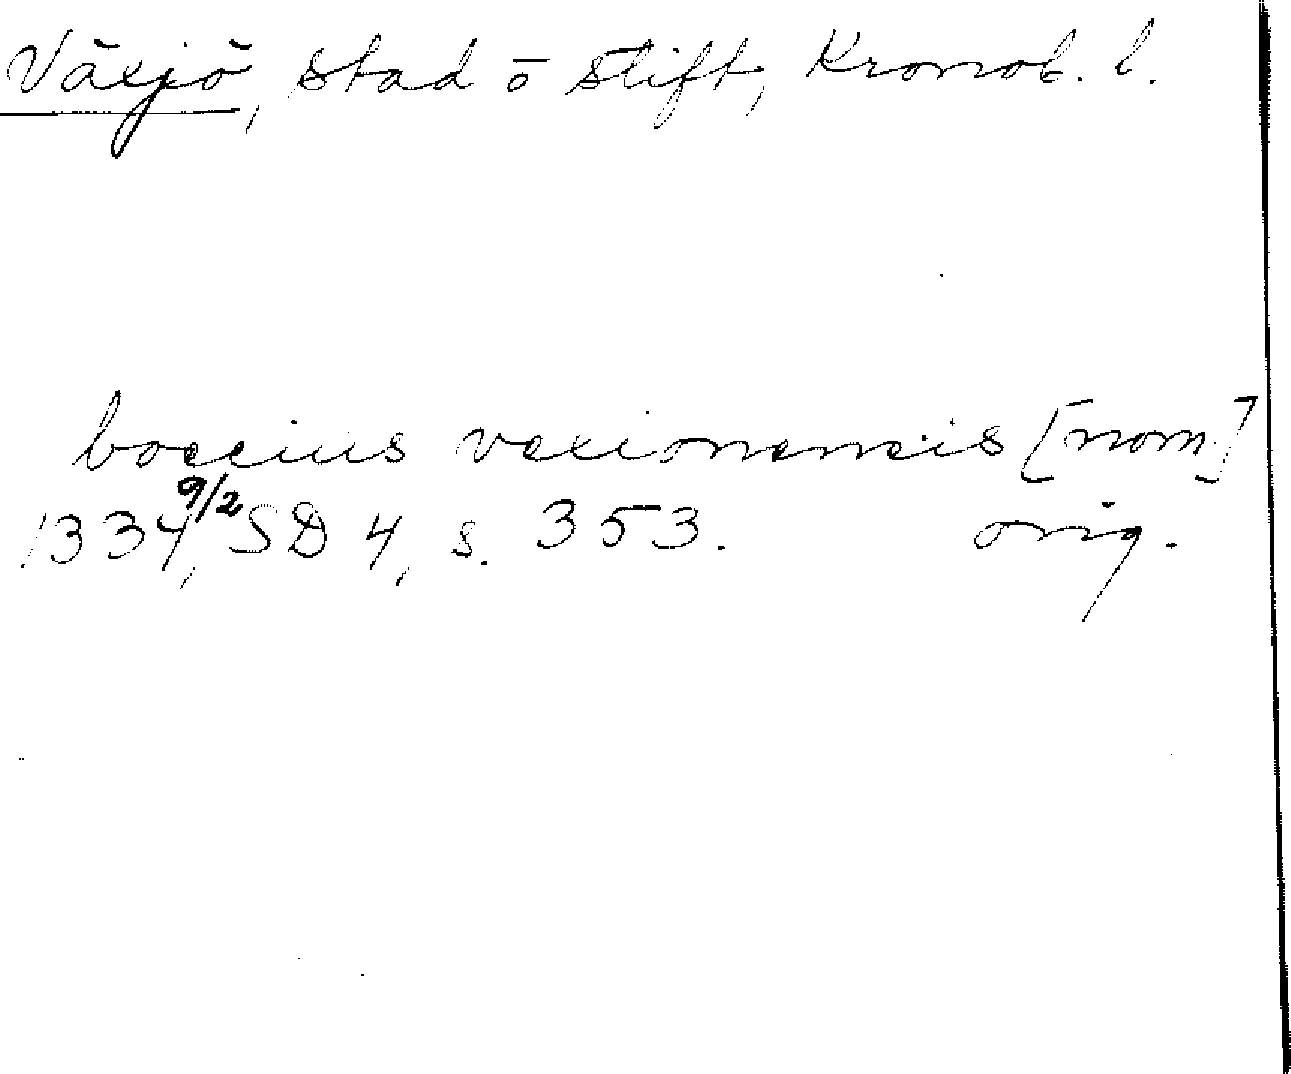 Växjö, stad o stift, Kronob. l.
boecius vexionensis [nom.]
1334 9/2, SD 4, s. 353. orig.